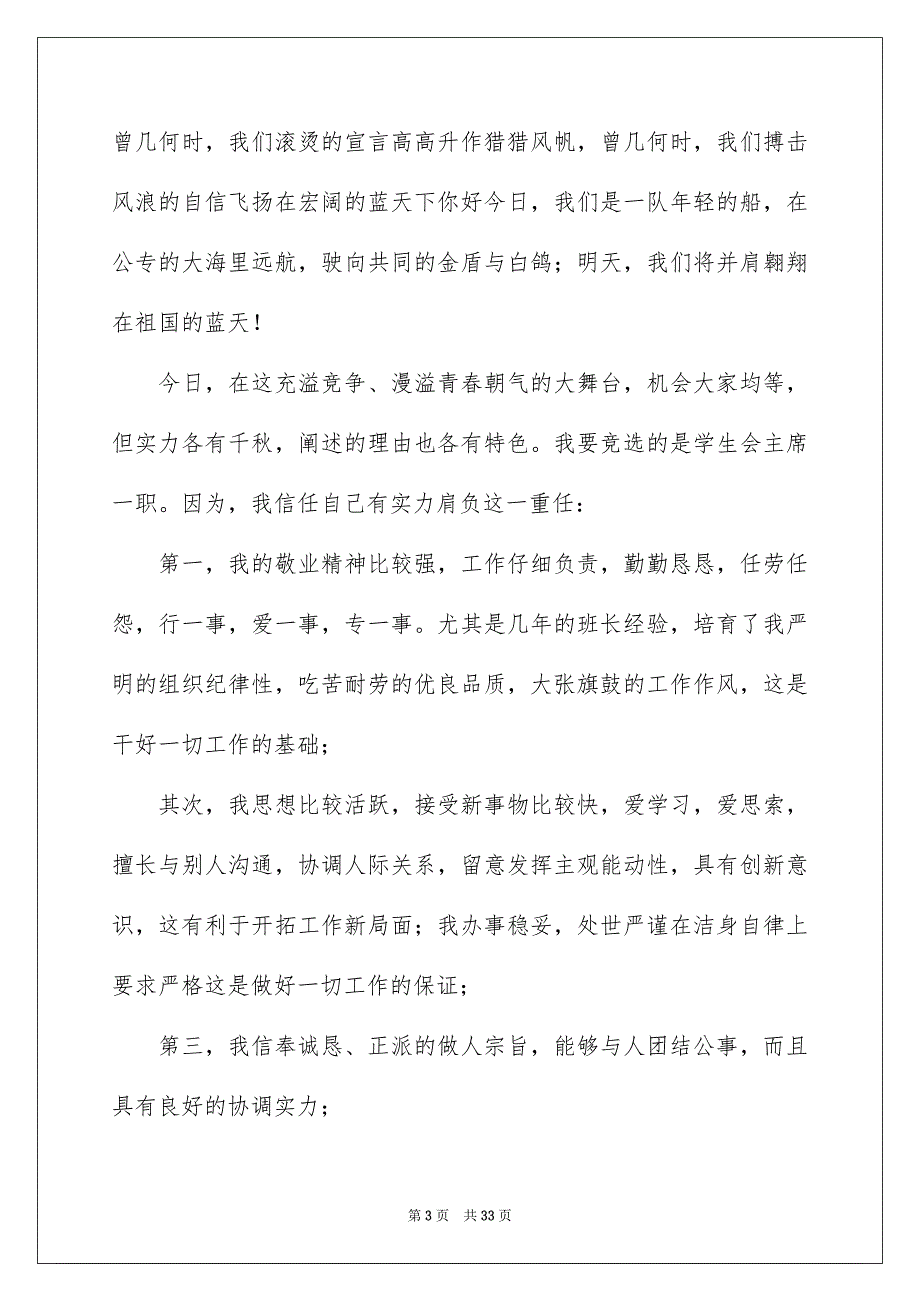 曾几何时，我们滚烫的宣言高高升作猎猎风帆，曾几何时，我们搏击
风浪的自信飞扬在宏阔的蓝天下你好今日，我们是一队年轻的船，在
公专的大海里远航，驶向共同的金盾与白鸽；明天，我们将并肩翱翔
在祖国的蓝天！
今日，在这充溢竞争、漫溢青春朝气的大舞台，机会大家均等，
但实力各有千秋，阐述的理由也各有特色。我要竞选的是学生会主席
一职。因为，我信任自己有实力肩负这一重任：
第一，我的敬业精神比较强，工作仔细负责，勤勤恳恳，任劳任
怨，行一事，爱一事，专一事。尤其是几年的班长经验，培育了我严
明的组织纪律性，吃苦耐劳的优良品质，大张旗鼓的工作作风，这是
干好一切工作的基础；
其次，我思想比较活跃，接受新事物比较快，爱学习，爱思索，
擅长与别人沟通，协调人际关系，留意发挥主观能动性，具有创新意
识，这有利于开拓工作新局面；我办事稳妥，处世严谨在洁身自律上
要求严格这是做好一切工作的保证；
第三，我信奉诚恳、正派的做人宗旨，能够与人团结公事，而且
具有良好的协调实力；
第 3 页 共 33 页